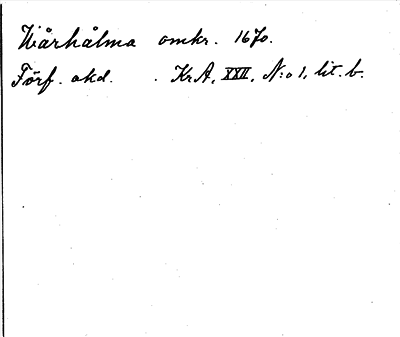 Wårhålma omkr. 1670.
Förf. okd. . Kr.A. XXII. N:o 1, lit. b.